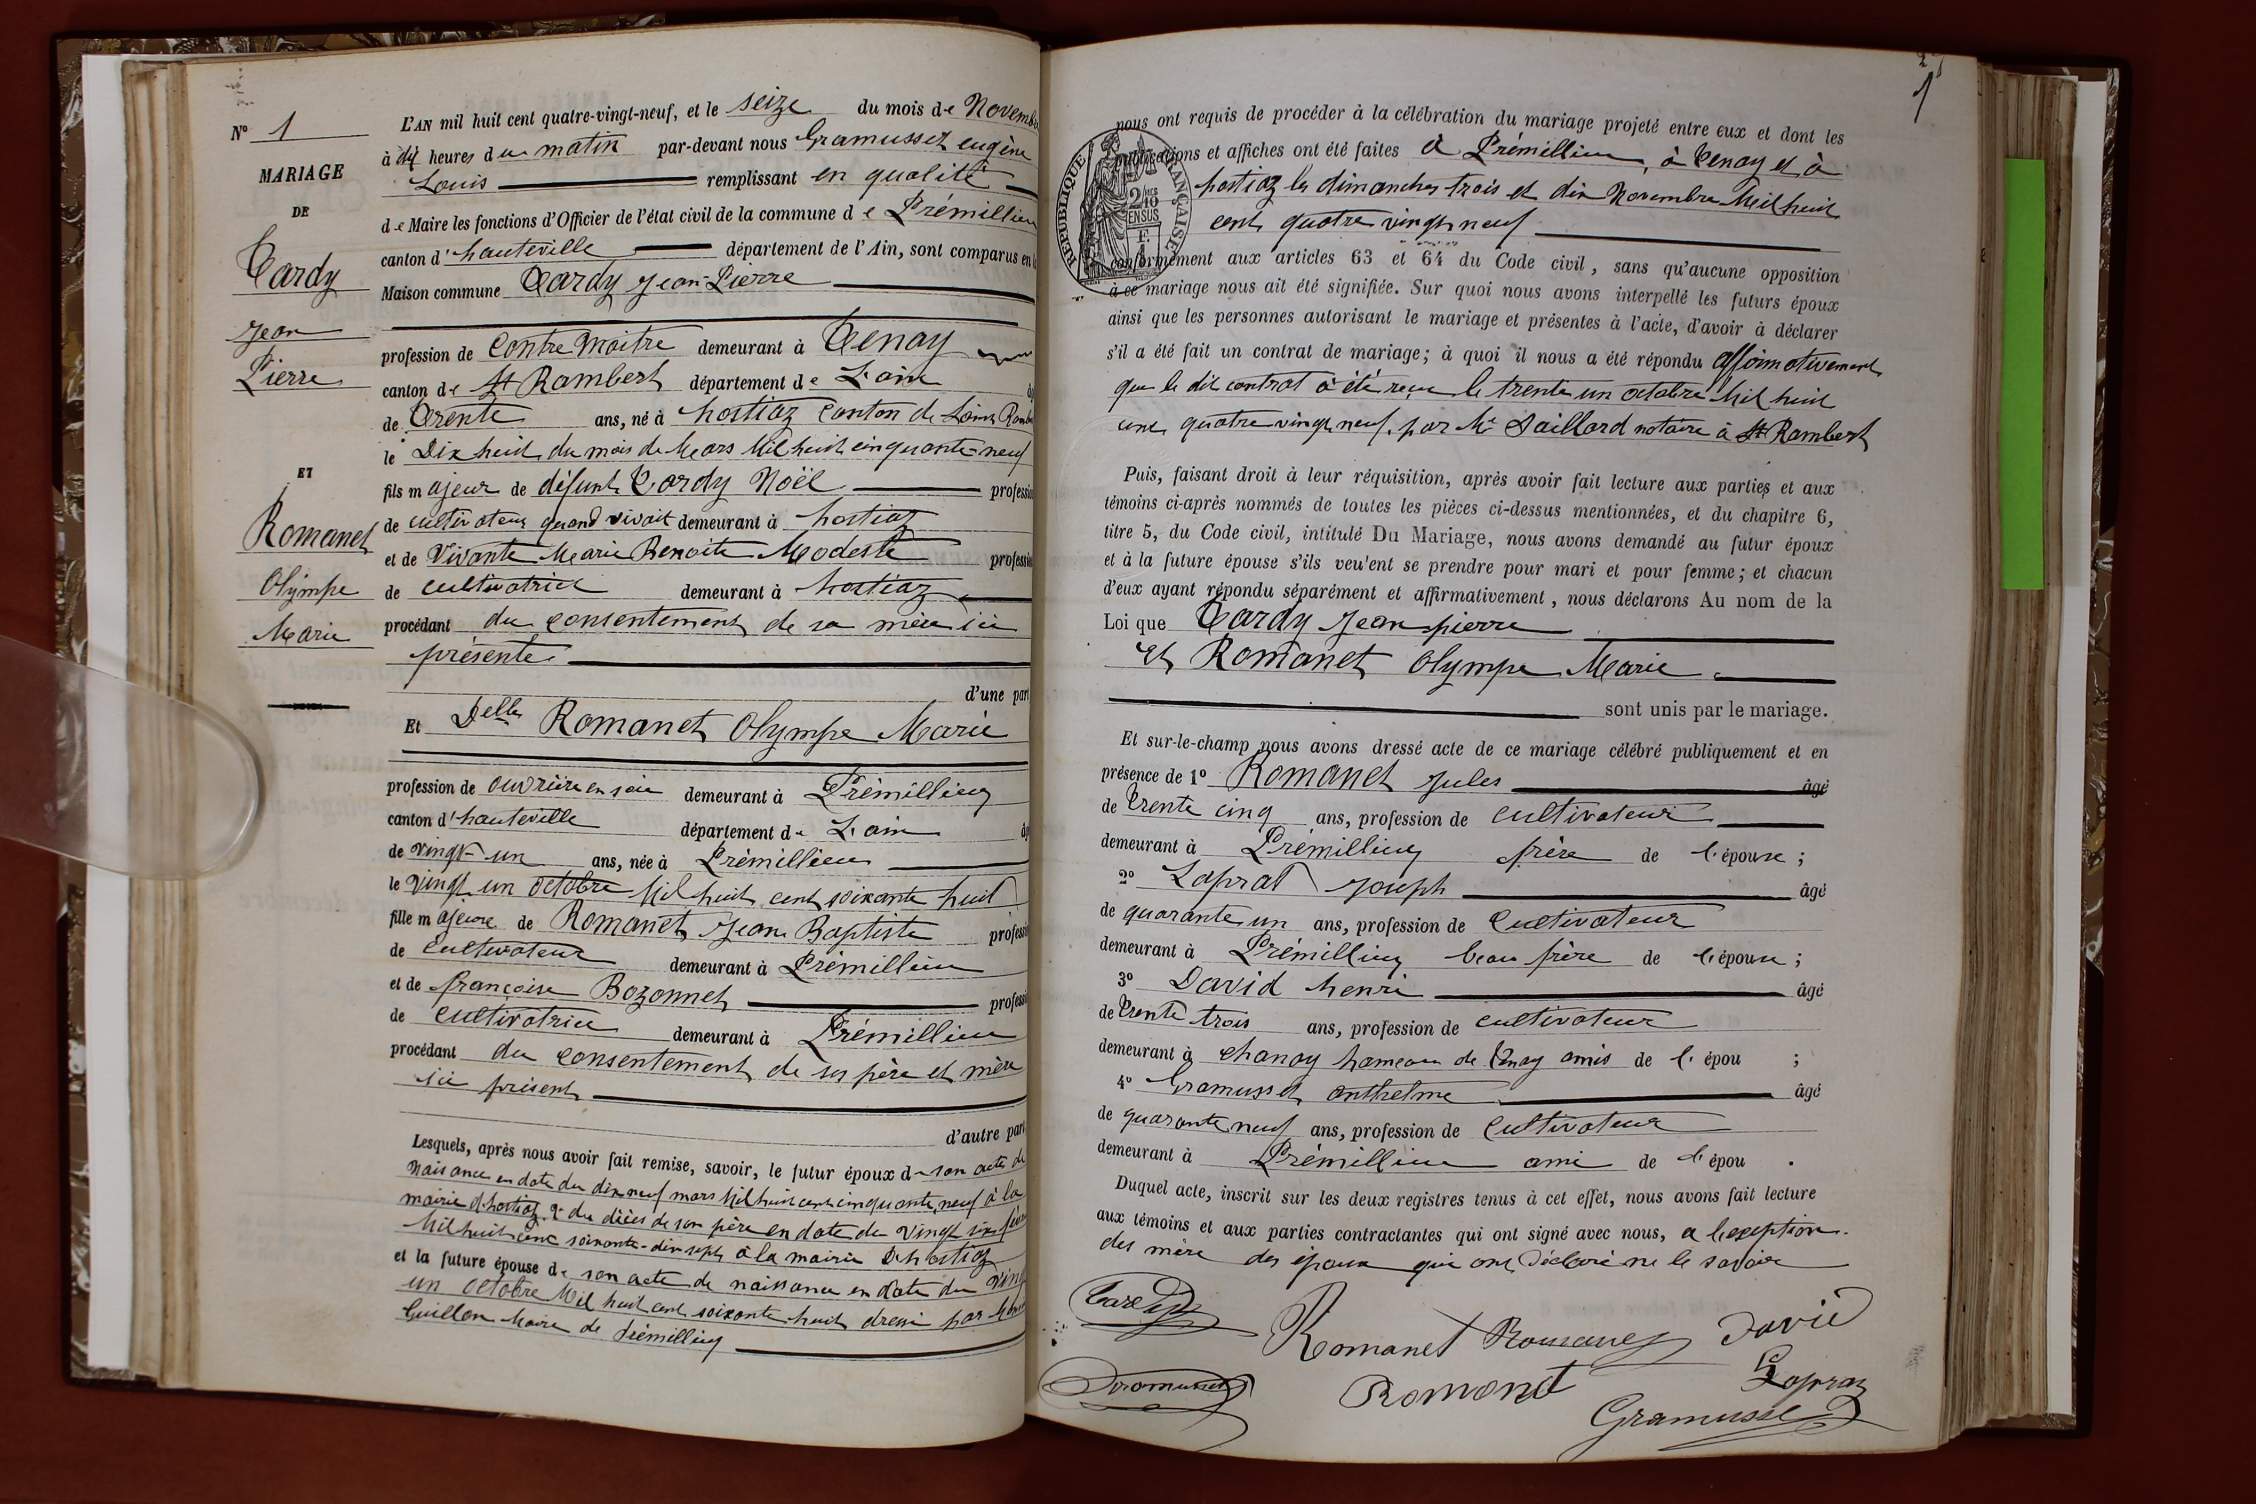 N° 1
MARIAGE
DE
Tardy
Jean
Pierre
ET
Romanet
Olympe
Marie
L'AN mil huit cent quatre-vingt-neuf, et le seize du mois de Novemb
à dix heures du matin par-devant nous Gramusset eugène
Louis remplissant en qualité
de Maire les fonctions d'Officier de l'état civil de la commune de Prémillieu
canton d'hauteville département de l'Ain, sont comparus en
Maison commune Tardy Jean-Pierre
profession de Contre Maitre demeurant à Tenay
canton de St Rambert département de L'ain
de Trente ans, né à hostiaz Canton de Saint Ramb
le Dix huit du mois de Mars Mil huit cinquante-neuf
fils majeur de défunt Tardy Noël professio
de cultivateur quand vivait demeurant à hostiaz
et de Vivante Marie Benoite Modeste professio
de cultivatrice demeurant à hostiaz
procédant du consentement de sa mère ici
présente
d'une part
Et Delle Romanet Olympe Marie
profession de ouvrière en soie demeurant à Prémillieu
canton d'hauteville département de L'ain
de vingt-un ans, née à Prémillieu
le vingt un octobre Mil huit cent soixante huit
fille majeure de Romanet Jean Baptiste professi
de Cultivateur demeurant à Prémillieu
et de françoise Bozonnet professi
de cultivatrice demeurant à Prémillieu
procédant du consentement de ses père et mère
ici présent
d'autre part
Lesquels, après nous avoir fait remise, savoir, le futur époux de son acte de
Naissance en date du dix neuf mars Mil huit cent cinquante, neuf à la
mairie d'hostiaz, & du décès de son père en date du vingt six
Mil huit cent soixante-dix sept à la mairie D'hostiaz
et la future épouse de son acte de naissance en date du vingt
un octobre Mil huit cent soixante huit dressé par
Guillon Maire de Prémillieu
1
nous ont requis de procéder à la célébration du mariage projeté entre eux et dont les
publications et affiches ont été faites à Prémillieu, à Tenay et à
hostiaz les dimanches trois et dix Novembre Mil huit
cent quatre vingt neuf
RÉPUBLIQUE FRANÇAISE
conformément aux articles 63 et 64 du Code civil, sans qu'aucune opposition
à ce mariage nous ait été signifiée. Sur quoi nous avons interpellé les futurs époux
ainsi que les personnes autorisant le mariage et présentes à l'acte, d'avoir à déclarer
s'il a été fait un contrat de mariage; à quoi il nous a été répondu affirmativement
que le dit contrat à été reçu le trente un octobre Mil huit
cent quatre vingt neuf, par Me Saillard notaire à St Rambert
Puis, faisant droit à leur réquisition, après avoir fait lecture aux parties et aux
témoins ci-après nommés de toutes les pièces ci-dessus mentionnées, et du chapitre 6,
titre 5, du Code civil, intitulé Du Mariage, nous avons demandé au futur époux
et à la future épouse s'ils veu'ent se prendre pour mari et pour femme; et chacun
d'eux ayant répondu séparément et affirmativement, nous déclarons Au nom de la
Loi que Tardy Jean pierre
et Romanet Olympe Marie
sont unis par le mariage.
Et sur-le-champ nous avons dressé acte de ce mariage célébré publiquement et en
présence de 1° Romanet Jules âgé
de trente cinq ans, profession de cultivateur
demeurant à Prémillieu frère de l'épouse;
2° Laprat Joseph âgé
de quarante un ans, profession de Cultivateur
demeurant à Prémillieu beau frère de l'épouse;
3° David henri âgé
de trente trois ans, profession de cultivateur
demeurant à Chanay hameau de Tenay amis de l'épou ;
4° Gramusset anthelme âgé
de quarante neuf ans, profession de Cultivateur
demeurant à Prémillieu ami de l'épou .
Duquel acte, inscrit sur les deux registres tenus à cet effet, nous avons fait lecture
aux témoins et aux parties contractantes qui ont signé avec nous, a l'exeption
des mère des époux qui ont déclaré ne le savoir
Tardy
Romanet Romanet David
Gramusset Romanet Lapraz
Gramusset